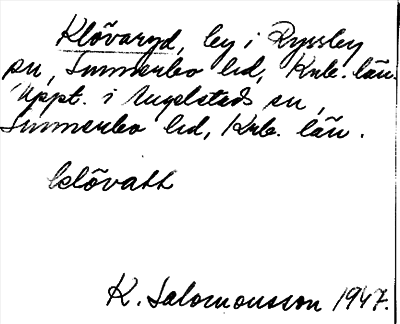 Klövaryd, by i Ryssby
sn, Sunnerbo hd, Krb. län.
Uppt. i Angelstads sn,
Sunnerbo hd, Krb. län.
klövatt
K. Salomonsson 1947.